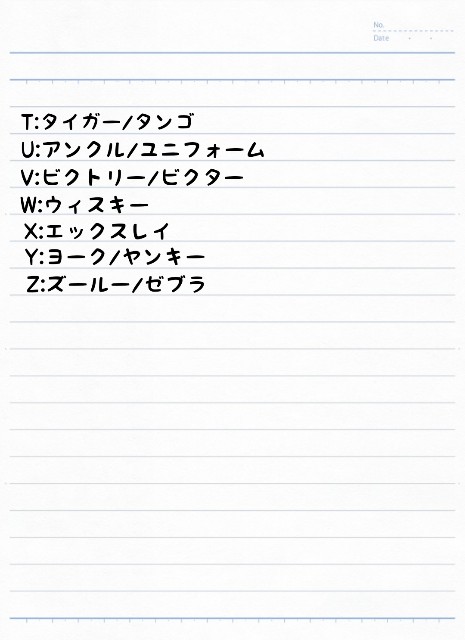 No.
Date
T:タイガー/タンゴ
U:アンクル/ユニフォーム
V:ビクトリー/ビクター
W:ウィスキー
X:エックスレイ
Y:ヨーク/ヤンキー
Z:ズールー/ゼブラ